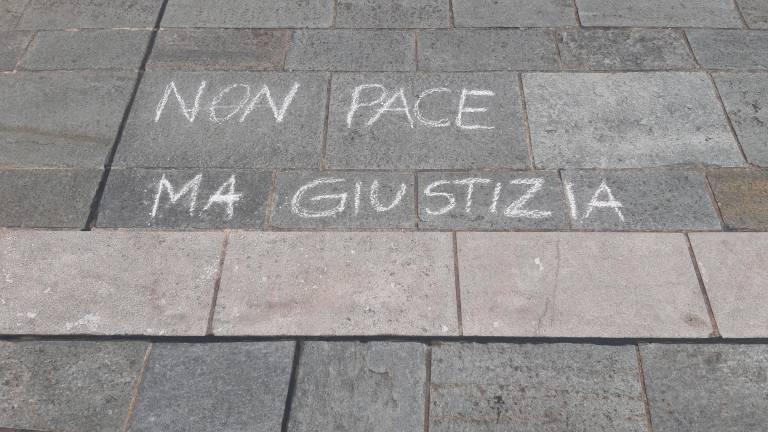 NON PACE
MA GIUSTIZIA